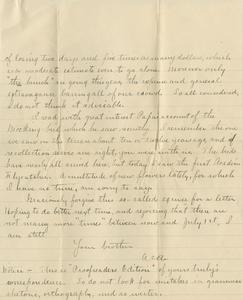 of losing two days and five times as many dollars, which
is a moderate estimate even to go alone. Moreover only
"the bunch" are going this year, the expense and general
extravagance barring all of our crowd. So all considered,
I do not think it advisable.
I read with great interest Papa's account of the
Wedding bird which he saw recently. I remember the one
we saw on the Urana about ten or twelve years ago, and if
recollection serves me right, you were with us. The birds
have nearly all arrived here, but today I saw the first Acadian
Flycatcher. A multitude of new flowers lately, for which
I have no time, am sorry to say.
Graciously forgive this so-called excuse for a letter
hoping to do better next time, and rejoicing that there are
not many more "times" between now and July 1st, I
am still
Your brother
Notice - This is "Proofreaders Edition" of yours truly's
correspondence. Do not look for mistakes in grammar
diction, orthography, and so forth.